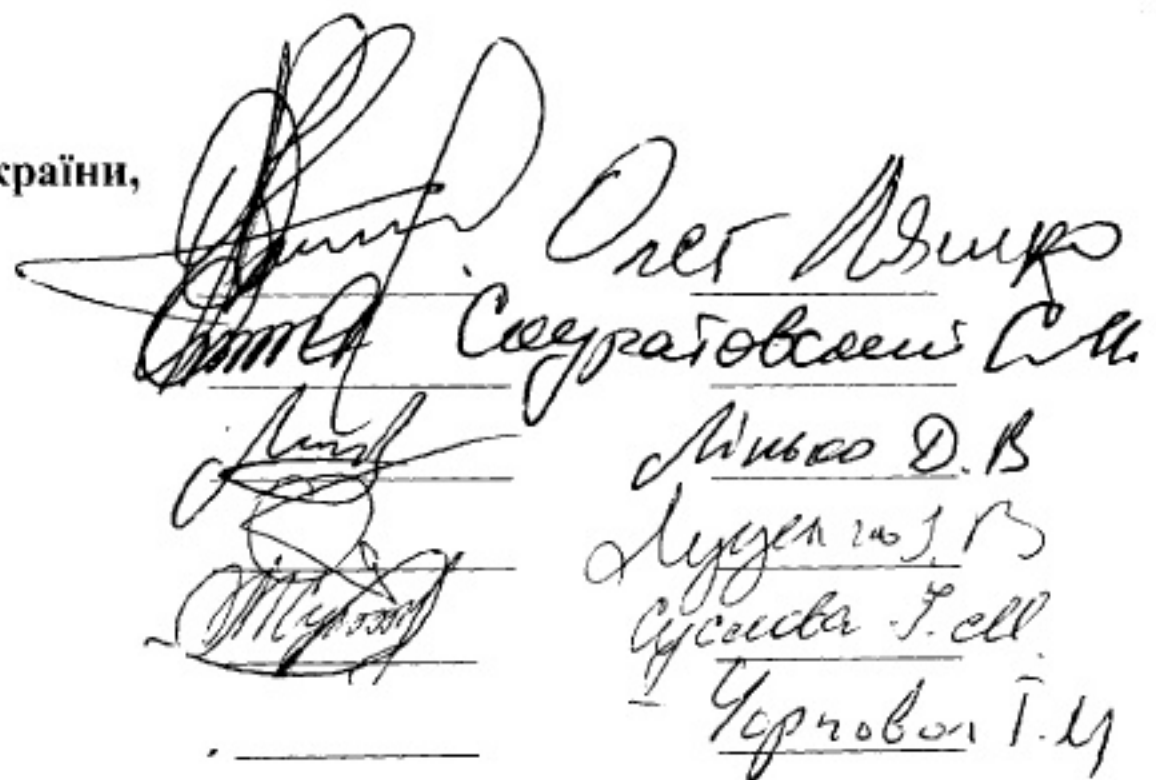 країни,
Олег Ляшко
Скуратовський С.И.
Лінько Д.В
Луценко І.В
Суслова І.М.
Чорновол Т.М